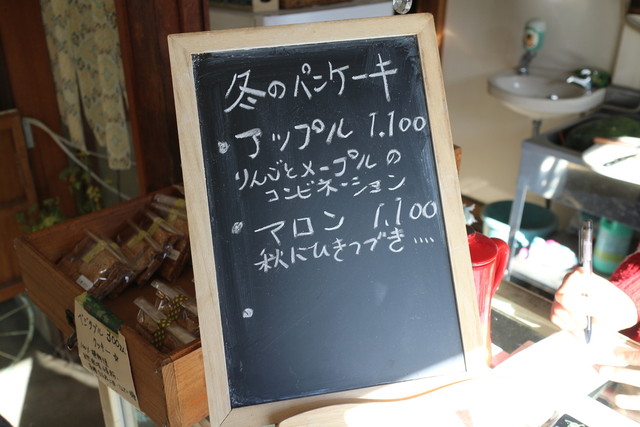 冬のパンケーキ
・アップル 1,100
りんごとメープルの
コンビネーション
・マロン 1,100
秋にひきつづき....
・